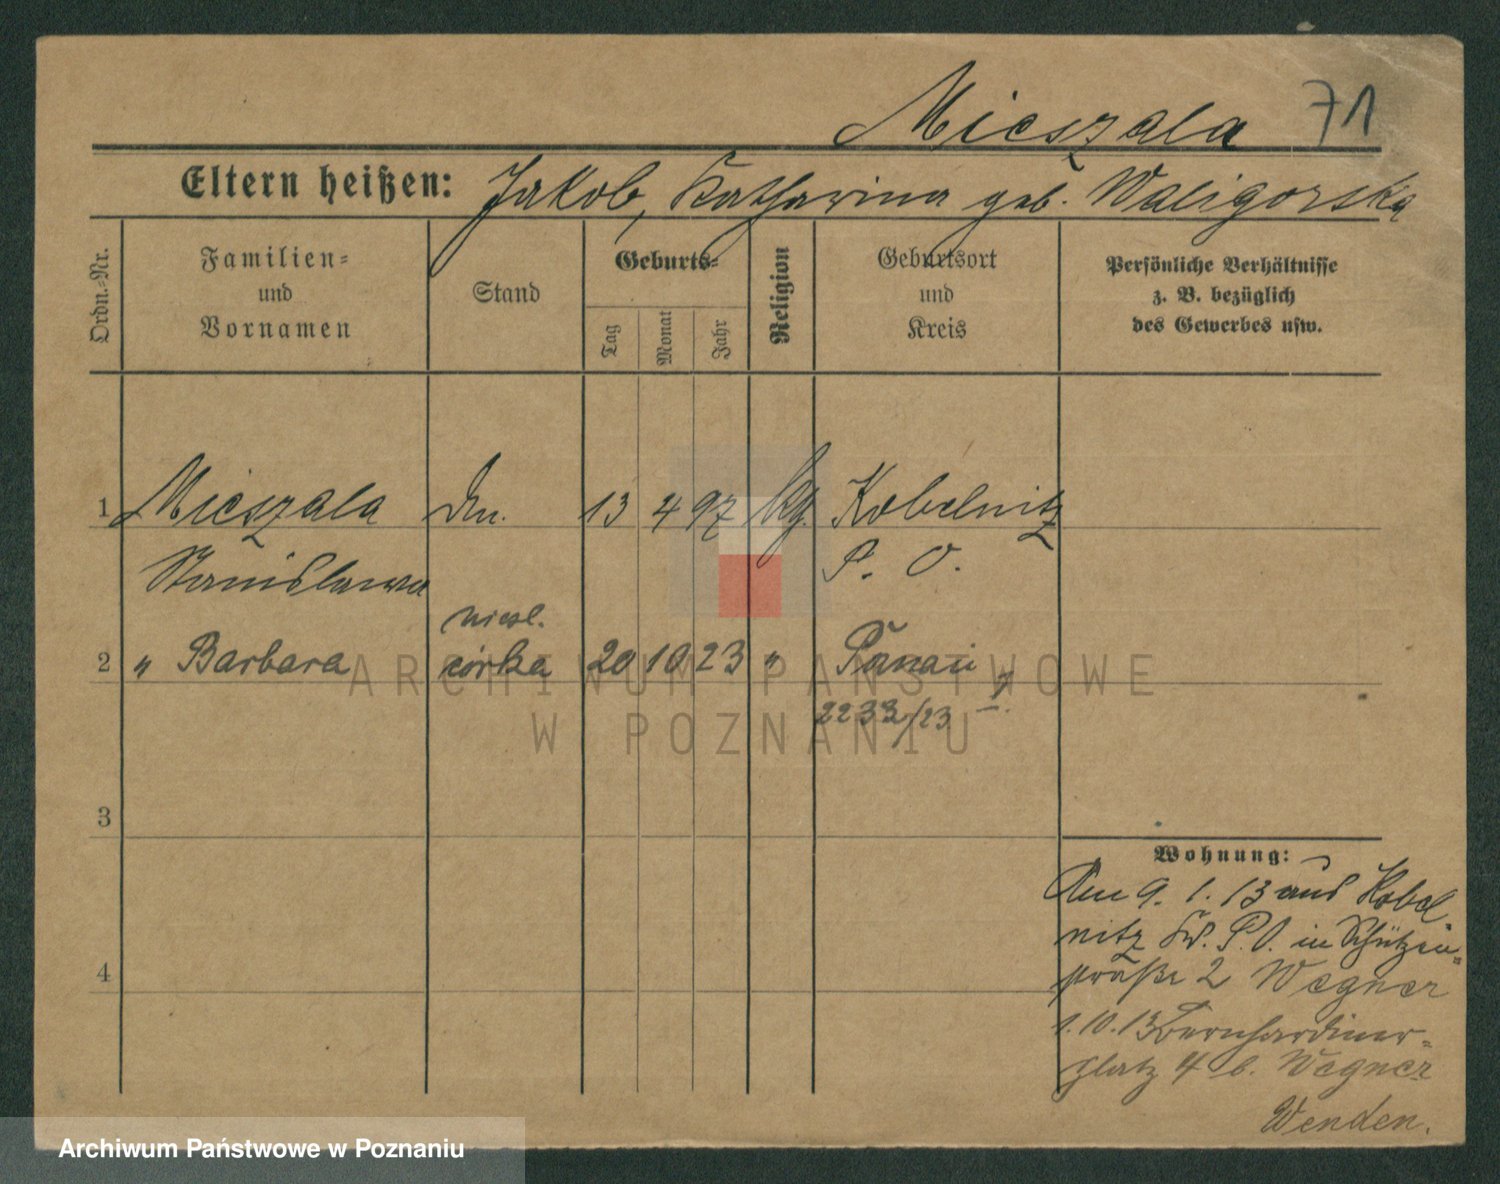 Mieszala 71
Eltern heißen: Jakob, Katharina geb. Waligorska
Ordn.-Nr.
Familien-
und
Vornamen
Stand
Geburts-
Tag
Monat
Jahr
Religion
Geburtsort
und
Kreis
Persönliche Verhältnisse
z. B. bezüglich
des Gewerbes usw.
1 Mieszala 13 4 97 Kobelnitz
Stanislawa P. O.
niesl.
2 " Barbara córka 20 10 23 "
2233/23
3
4
Wohnung:
Am 9. 1. 13 aus Kobel-
nitz P. O. in Schützen-
straße 2 Wegner
1. 10. 13 Bernhardiner-
platz 4 b. Wegner
Wenden.
ARCHIWUM PAŃSTWOWE
W POZNANIU
Archiwum Państwowe w Poznaniu